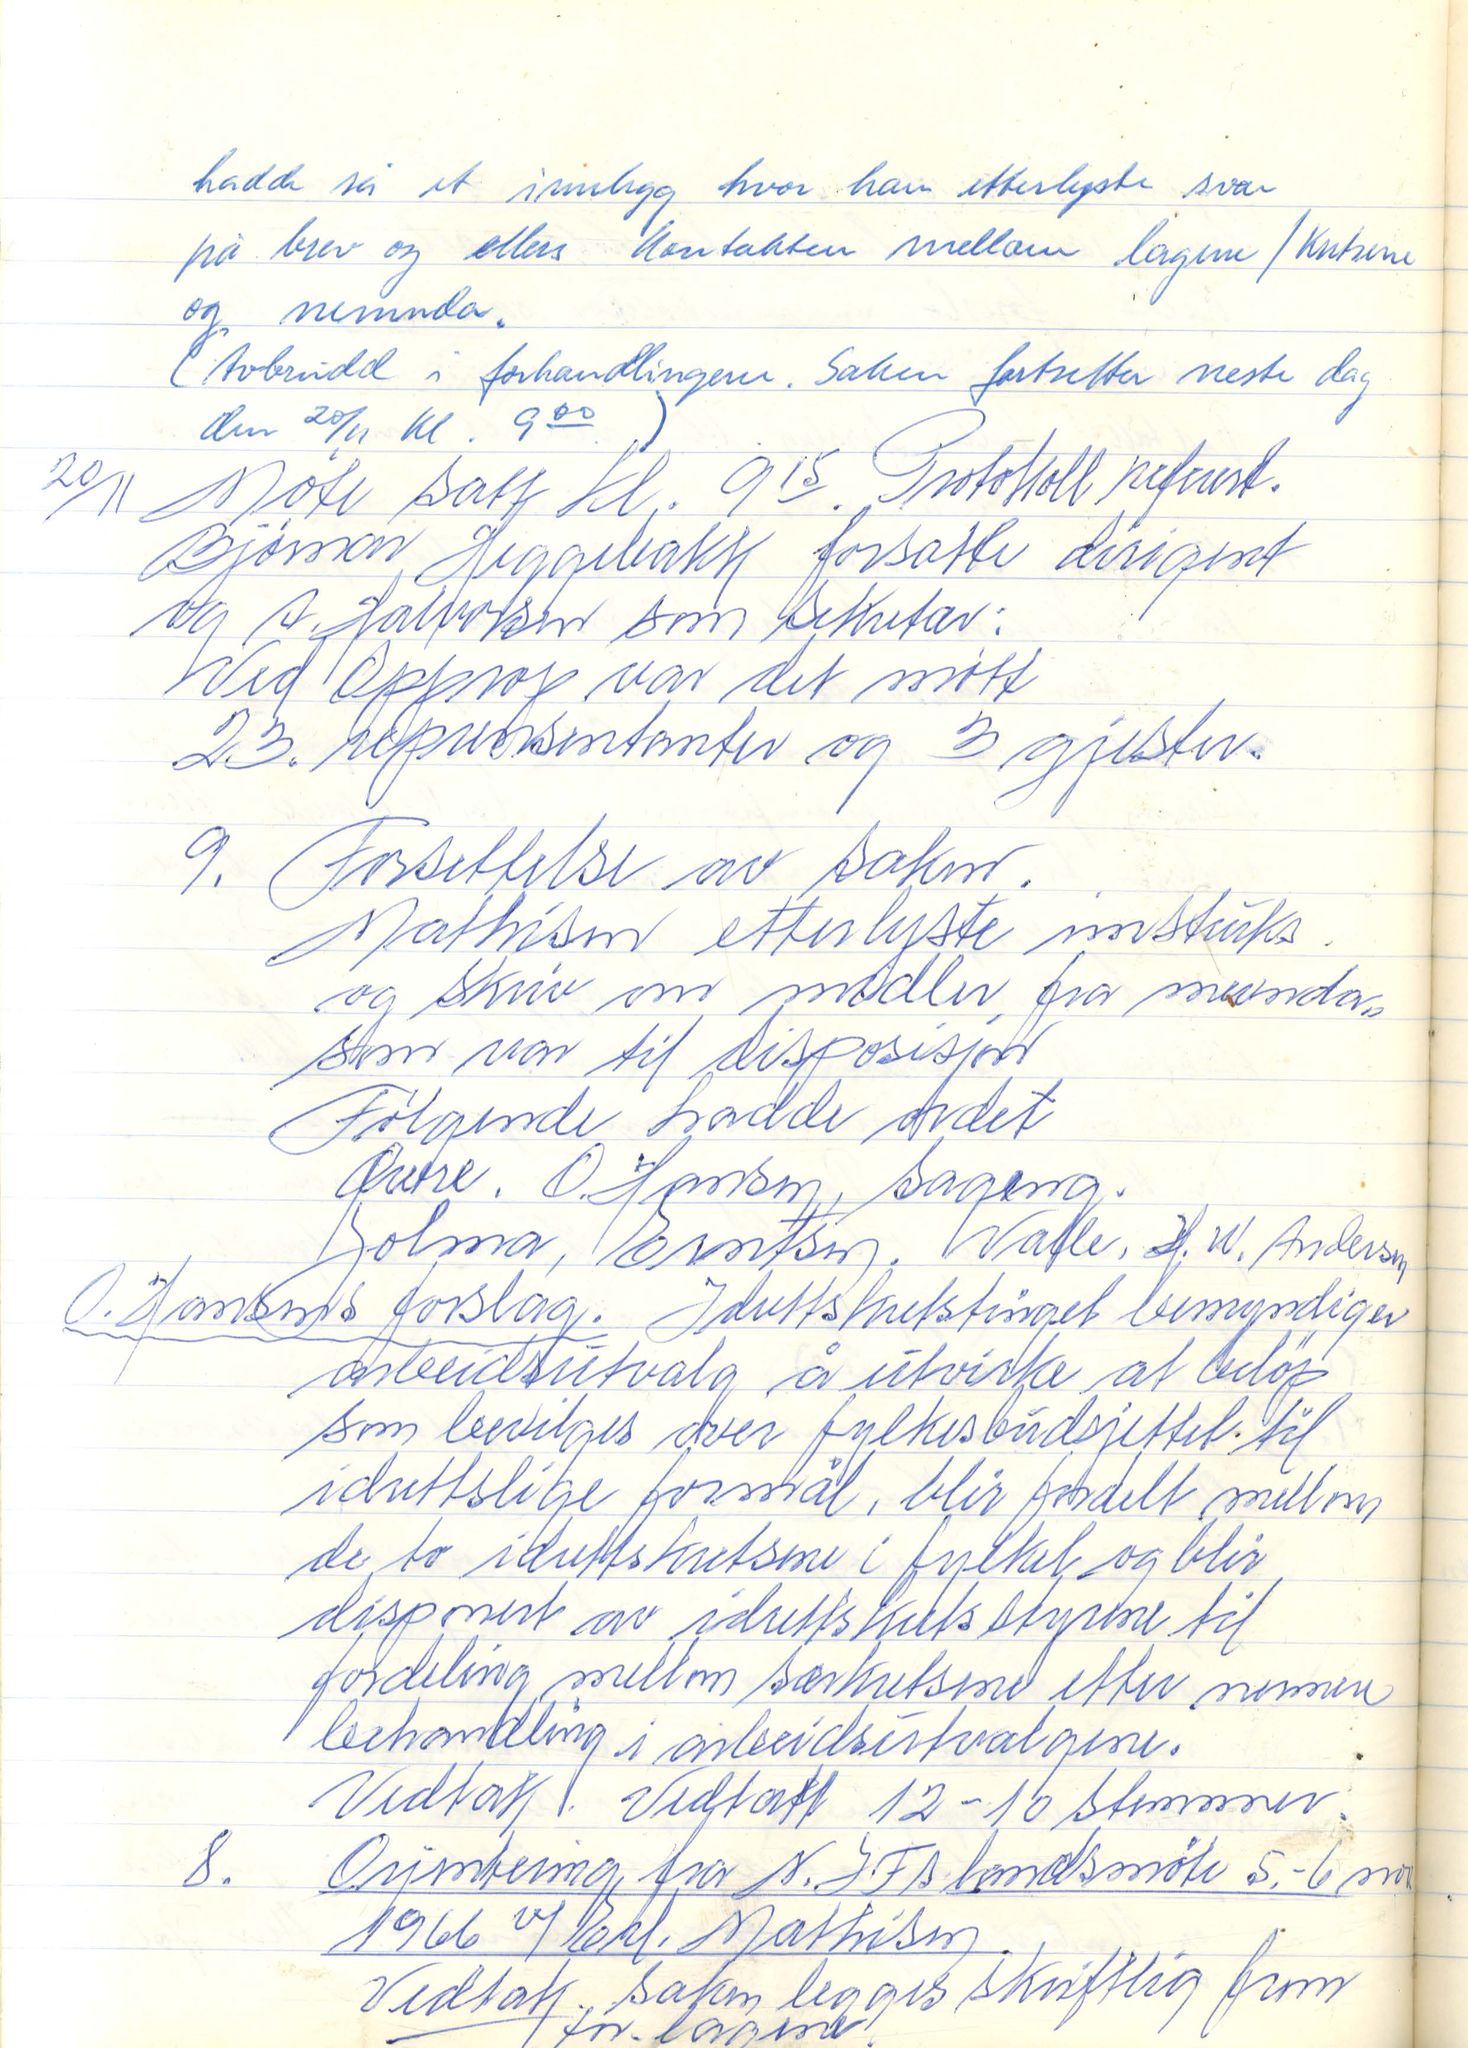 hadde så et innlegg hvor han etterlyste svar
på brev og ellers kontakten mellom lagene / kretsene
og nemnda.
(Avbrudd i forhandlingene. Saken fortsetter neste dag
den 20/11 kl. 9 00)
20/11 Möte satt kl. 9 15. Protokoll referert.
Björnar Heggebakk forsatte dirigent
og A. Halvorsen som sekretær:
Ved Opprop var det mött
23. representanter og 3 gjester.
9. Forsettelse av saken.
Mathisen etterlyste
og skriv om midler, fra nemnda,
som var til disposisjon
Fölgende hadde ordet
O. Hansen, Sageng.
Holma, Evertsen. Valle, H. W. Andersen
O. Hansens forslag. Idrettskretstinget bemyndiger
arbeidsutvalg å utvirke at belöp
som bevilges over fylkesbudsjettet til
idrettslige formål, blir fordelt mellom
de to idrettskretsene i fylket, og blir
disponert av idrettskretsstyrene til
fordeling mellom særkretsene etter nærmere
behandling i arbeidsutvalgene.
Vedtak. Vedtatt 12-10 stemmer.
8. Orientering fra N.I.Fs landsmöte 5.-6 nov
1966 v/ Erl. Mathisen.
Vedtak. Saken legges skriftlig fram
for lagene.